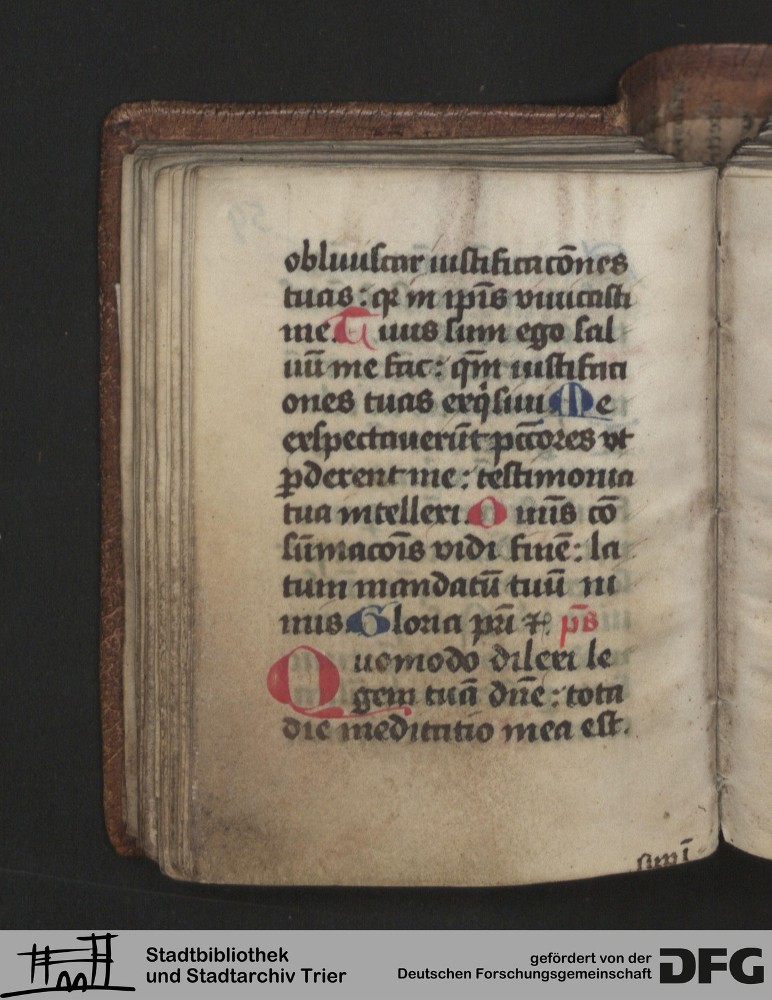 obliuiscar iustificacōnes
tuas : qꝛ in ip̄is viuicasti
me. Tuus sum ego sal
uū me fac : qm̄ iustificaci
ones tuas exq̇siui Me
exspectauerūt pc̄cores vt
ꝑderent me : testimonia
tua intellexi. Omīs cō
sūmacōis vidi finē : la
tum mandatū tuū ni
mis Gloria pr̄i ⁊. ps̄
Quomodo dilexi le
gem tuā dn̄e : tota
die meditatio mea est.
Stadtbibliothek
und Stadtarchiv Trier
gefördert von der
Deutschen Forschungsgemeinschaft
DFG